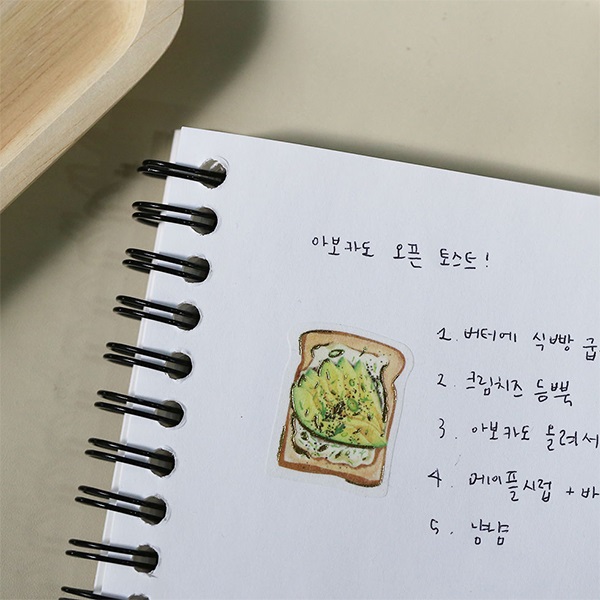 아보카도 오픈 토스트!
1. 버터에 식빵 굽
2. 크림치즈 듬뿍
3. 아보카도 올려서
4. 메이플시럽 + 바
5. 냠냠